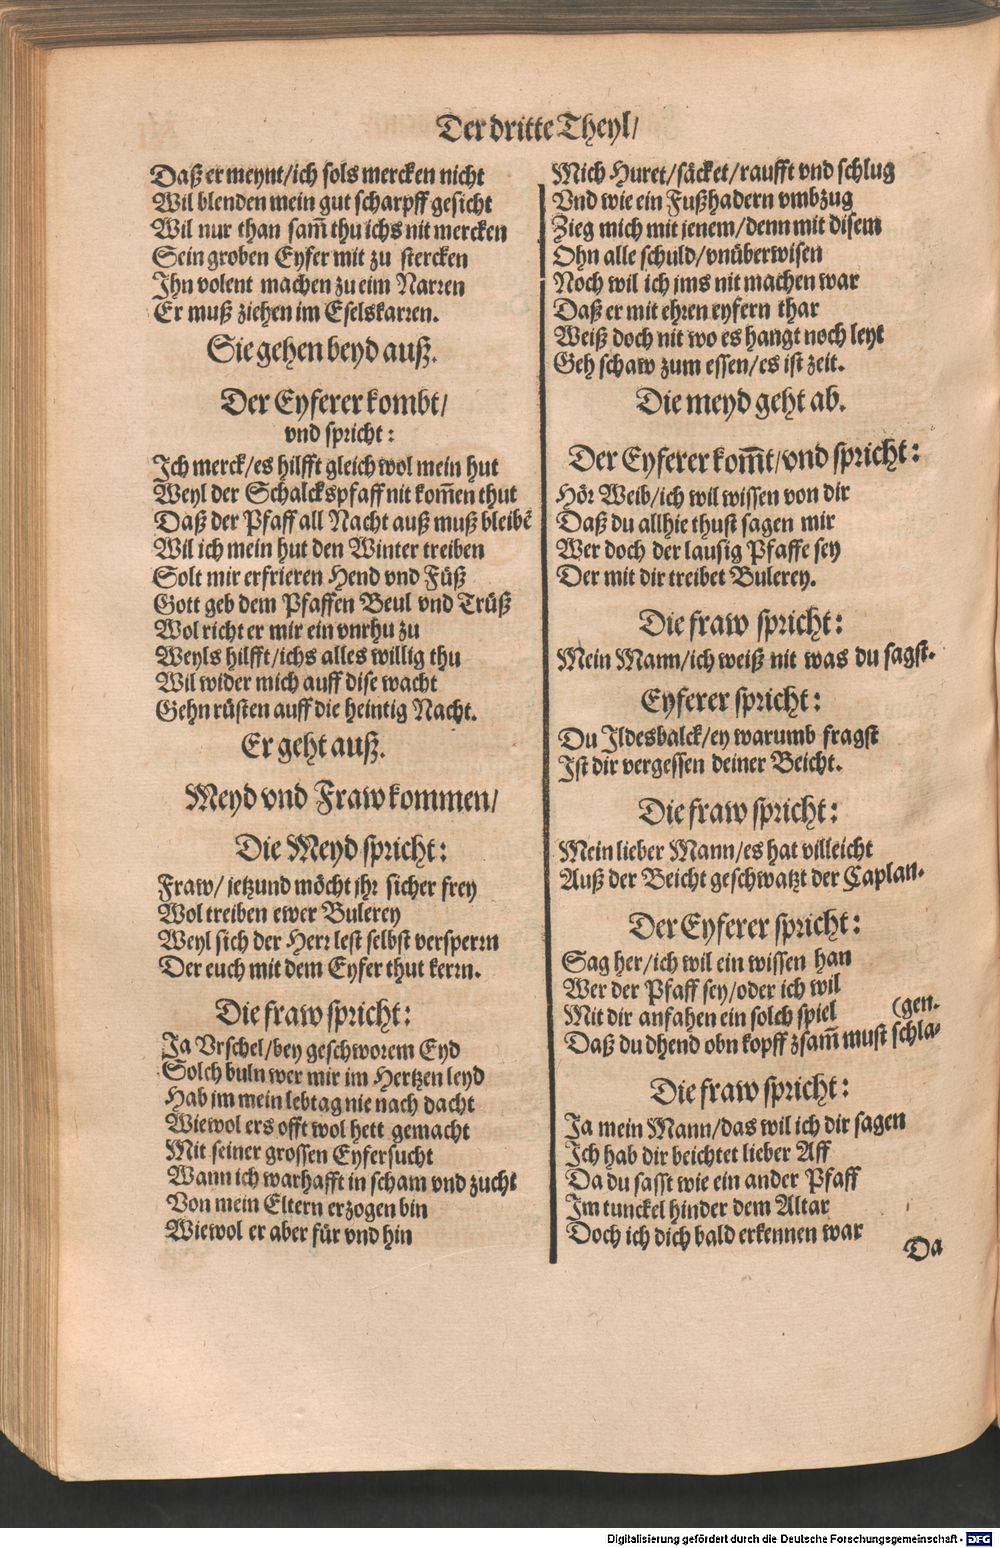 Der dritte Theyl/
Daß er meynt/ich sols mercken nicht
Wil blenden mein gut scharpff gesicht
Wil nur than sam̃ thu ichs nit mercken
Sein groben Eyfer mit zu stercken
Ihn volent machen zu eim Narren
Er muß ziehen im Eselskarren.
Sie gehen beyd auß.
Der Eyferer kombt/
vnd spricht:
Ich merck/es hilfft gleich wol mein hut
Weyl der Schalckspfaff nit kom̃en thut
Daß der Pfaff all Nacht auß muß bleibẽ
Wil ich mein hut den Winter treiben
Solt mir erfrieren Hend vnd Füß
Gott geb dem Pfaffen Beul vnd Trüß
Wol richt er mir ein vnrhu zu
Weyls hilfft/ichs alles willig thu
Wil wider mich auff dise wacht
Gehn rüsten auff die heintig Nacht.
Er geht auß.
Meyd vnd Fraw kommen/
Die Meyd spricht:
Fraw/ jetzund möcht jhr sicher frey
Wol treiben ewer Bulerey
Weyl sich der Herr lest selbst versperrn
Der euch mit dem Eyfer thut kerrn.
Die fraw spricht:
Ja Vrschel/bey geschworem Eyd
Solch buln wer mir im Hertzen leyd
Hab jm mein lebtag nie nach dacht
Wiewol ers offt wol hett gemacht
Mit seiner grossen Eyfersucht
Wann ich warhafft in scham vnd zucht
Von mein Eltern erzogen bin
Wiewol er aber für vnd hin
Mich Huret/säcket/raufft vnd schlug
Vnd wie ein Fußhadern vmbzug
Zieg mich mit jenem/denn mit disem
Ohn alle schuld/vnüberwisen
Noch wil ich jms nit machen war
Daß er mit ehren eyfern thar
Weiß doch nit wo es hangt noch leyt
Geh schaw zum essen/es ist zeit.
Die meyd geht ab.
Der Eyferer kom̃t/vnd spricht:
Hör Weib/ich wil wissen von dir
Daß du allhie thust sagen mir
Wer doch der lausig Pfaffe sey
Der mit dir treibet Bulerey.
Die fraw spricht:
Mein Mann/ich weiß nit was du sagst.
Eyferer spricht:
Du Ildesbalck/ey warumb fragst
Ist dir vergessen deiner Beicht.
Die fraw spricht:
Mein lieber Mann/es hat villeicht
Auß der Beicht geschwatzt der Caplan.
Der Eyferer spricht:
Sag her/ich wil ein wissen han
Wer der Pfaff sey/oder ich wil
Mit dir anfahen ein solch spiel (gen.
Daß du dhend obn kopff zsam̃ must schla-
Die fraw spricht:
Ja mein Mann/das wil ich dir sagen
Ich hab dir beichtet lieber Aff
Da du sasst wie ein ander Pfaff
Im tunckel hinder dem Altar
Doch ich dich bald erkennen war
Da
Digitalisierung gefördert durch die Deutsche Forschungsgemeinschaft - DFG